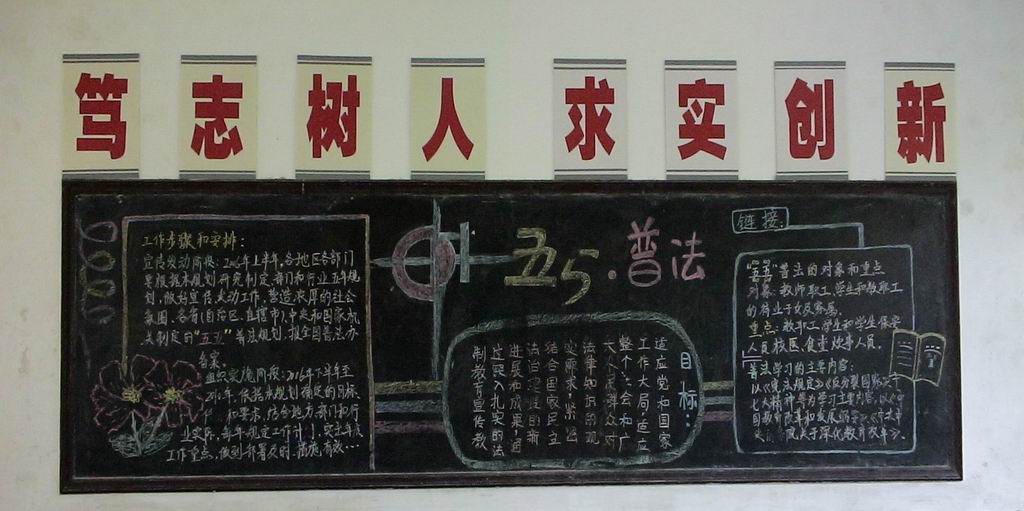 笃志树人 求实创新
五五·普法
工作步骤和安排：
宣传发动阶段：2006年上半年，各地区各部门
要根据本规划研究制定部门和行业五年规
划，做好宣传发动工作，营造浓厚的社会
氛围。各省（自治区、直辖市）、中央和国家机
关制定的“五五”普法规划，报全国普法办
备案。
组织实施阶段：2006年下半年至
年，依据本规划确定的目标、
和要求，结合地方部门和行
业实际，每年制定工作计划，突出年度
工作重点，做到部署及时、措施有效…
目标：
适应党和国家
工作大局，适应
整个社会和广
大人民群众对
法律知识的现
实需求，紧密
结合国家民主
法治建设的新
进展和成果，通
过深入扎实的法
制教育宣传教
链接：
“五五”普法的对象和重点
对象：教师职工、学生和教职工
的待业子女及家属。
重点：教职工、学生和学生保安
人员、校医、食堂炊事人员。
普法学习的主要内容：